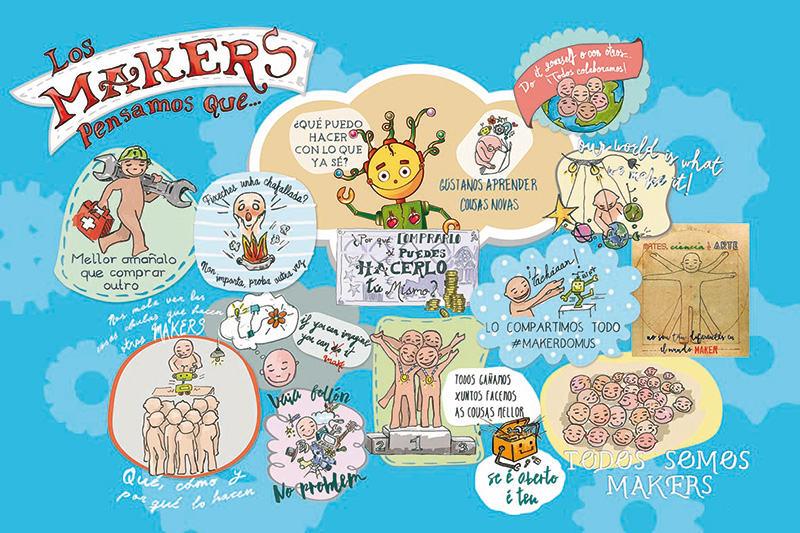 Los
MAKERS
Pensamos que...
¿QUÉ PUEDO
HACER
CON LO QUE
YA SÉ?
GÚSTANOS APRENDER
COUSAS NOVAS
Do it yourself o con otros...
¡Todos colaboramos!
our world is what
we make it!
Mellor amañalo
que comprar
outro
Fixeches unha chafallada?
Non importa, proba outra vez
¿Por qué COMPRARLO
si PUEDES
HACERLO
tú Mismo?
¡tachaaan!
LO COMPARTIMOS TODO
#MAKERDOMUS
MATES, ciencia & ARTE
no son tan diferentes en
el mundo MAKER
Nos mola ver las
cosas chulas que hacen
otros MAKERS
Qué, cómo y
por qué lo hacen
if you can imagine
you can do it
make
Vaia follón
No problem
2 1 3
TODOS GAÑAMOS
XUNTOS FACEMOS
AS COUSAS MELLOR
Se é aberto
é teu
TODOS SOMOS
MAKERS